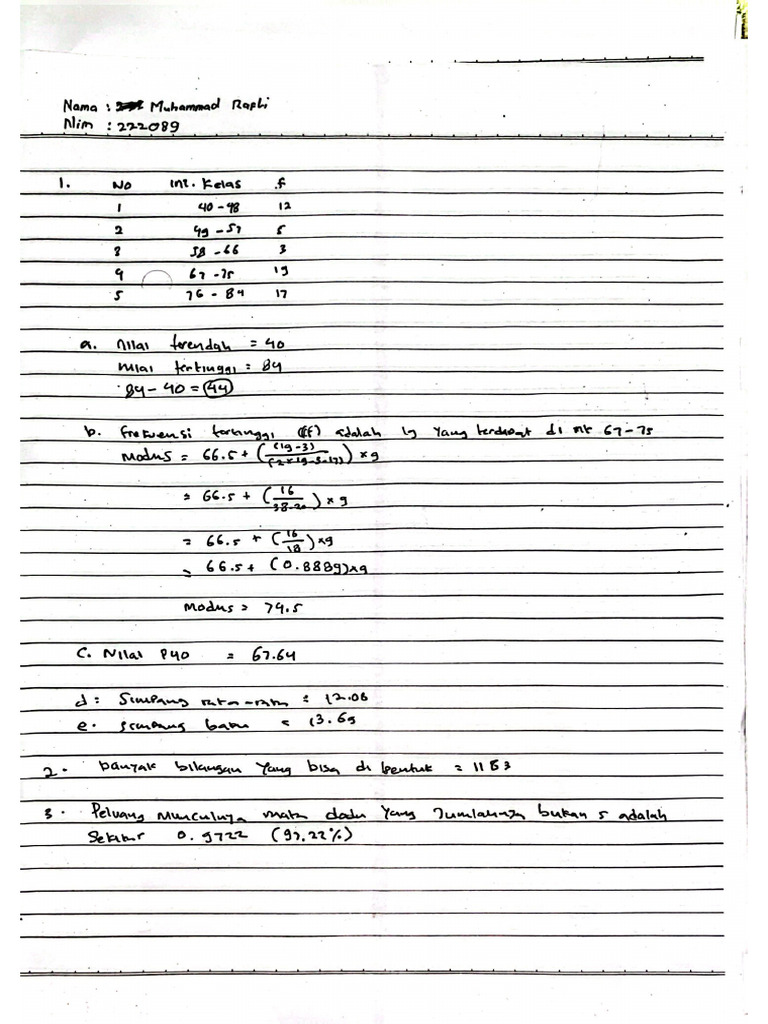 Nama : Muhammad Rafli
Nim : 222089
1. No Int. Kelas f
1 40 - 48 12
2 49 - 57 5
3 58 - 66 3
4 67 - 75 19
5 76 - 84 17
a. Nilai terendah = 40
Nilai tertinggi = 84
84 - 40 = 44
b. Frekuensi tertinggi (f) adalah 19 yang terdapat di 67-75
Modus = 66.5 + ( (19-3) / (2×19-3-17) ) × 9
= 66.5 + ( 16 / 38-20 ) × 9
= 66.5 + ( 16 / 18 ) × 9
= 66.5 + (0.8889) × 9
Modus = 74.5
C. Nilai P40 = 67.64
d = Simpang rata-rata = 12.06
e. Simpang baku = 13.69
2. banyak bilangan yang bisa di bentuk = 1183
3. Peluang munculnya mata dadu yang Jumlahnya bukan 5 adalah
Sekitar 0.9722 (97.22%)